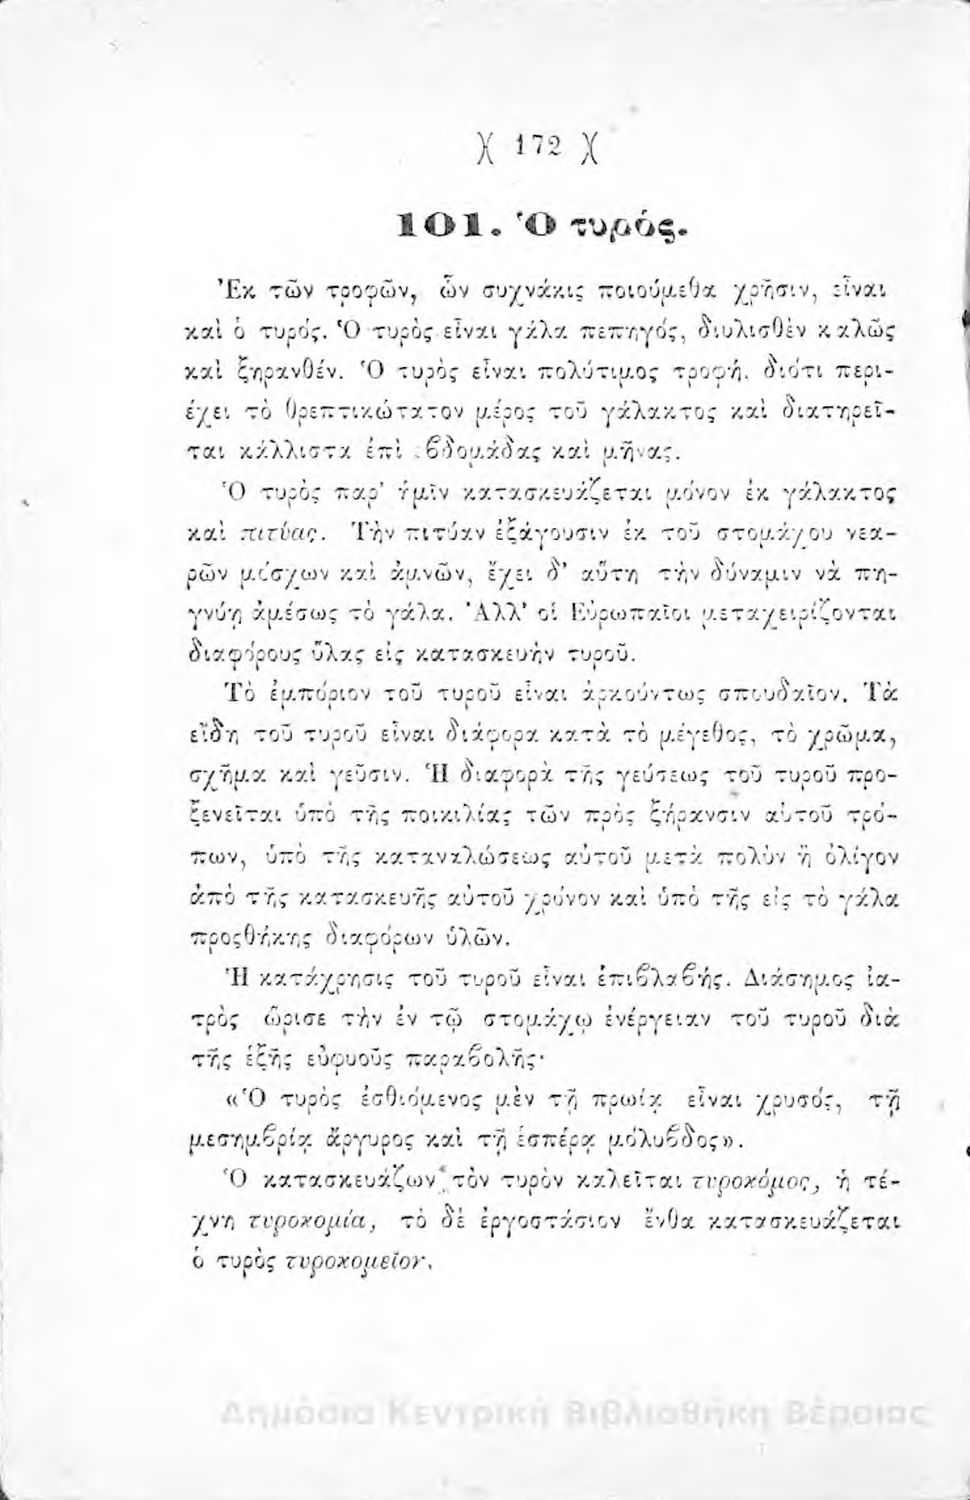 )( 172 )(
101. Ὁ τυρός.
Ἐκ τῶν τροφῶν, ὧν συχνάκις ποιούμεθα χρῆσιν, εἶναι
καὶ ὁ τυρός. Ὁ τυρὸς εἶναι γάλα πεπηγός, διυλισθὲν καλῶς
καὶ ξηρανθέν. Ὁ τυρὸς εἶναι πολύτιμος τροφή, διότι περι-
έχει τὸ θρεπτικώτατον μέρος τοῦ γάλακτος καὶ διατηρεῖ-
ται κάλλιστα ἐπὶ ἑβδομάδας καὶ μῆνας.
Ὁ τυρὸς παρ' ἡμῖν κατασκευάζεται μόνον ἐκ γάλακτος
καὶ πιτύας. Τὴν πιτύαν ἐξάγουσιν ἐκ τοῦ στομάχου νεα-
ρῶν μόσχων καὶ ἀμνῶν, ἔχει δ' αὕτη τὴν δύναμιν νὰ πη-
γνύῃ ἀμέσως τὸ γάλα. Ἀλλ' οἱ Εὐρωπαῖοι μεταχειρίζονται
διαφόρους ὕλας εἰς κατασκευὴν τυροῦ.
Τὸ ἐμπόριον τοῦ τυροῦ εἶναι ἀρκούντως σπουδαῖον. Τὰ
εἴδη τοῦ τυροῦ εἶναι διάφορα κατὰ τὸ μέγεθος, τὸ χρῶμα,
σχῆμα καὶ γεῦσιν. Ἡ διαφορὰ τῆς γεύσεως τοῦ τυροῦ προ-
ξενεῖται ὑπὸ τῆς ποικιλίας τῶν πρὸς ξήρανσιν αὐτοῦ τρό-
πων, ὑπὸ τῆς καταναλώσεως αὐτοῦ μετὰ πολὺν ἢ ὀλίγον
ἀπὸ τῆς κατασκευῆς αὐτοῦ χρόνον καὶ ὑπὸ τῆς εἰς τὸ γάλα
προςθήκης διαφόρων ὑλῶν.
Ἡ κατάχρησις τοῦ τυροῦ εἶναι ἐπιβλαβής. Διάσημος ἰα-
τρὸς ὥρισε τὴν ἐν τῷ στομάχῳ ἐνέργειαν τοῦ τυροῦ διὰ
τῆς ἑξῆς εὐφυοῦς παραβολῆς·
«Ὁ τυρὸς ἐσθιόμενος μὲν τῇ πρωίᾳ εἶναι χρυσός, τῇ
μεσημβρίᾳ ἄργυρος καὶ τῇ ἑσπέρᾳ μόλυβδος».
Ὁ κατασκευάζων τὸν τυρὸν καλεῖται τυροκόμος, ἡ τέ-
χνη τυροκομία, τὸ δὲ ἐργοστάσιον ἔνθα κατασκευάζεται
ὁ τυρὸς τυροκομεῖον.
Δημόσια Κεντρική Βιβλιοθήκη Βέροιας